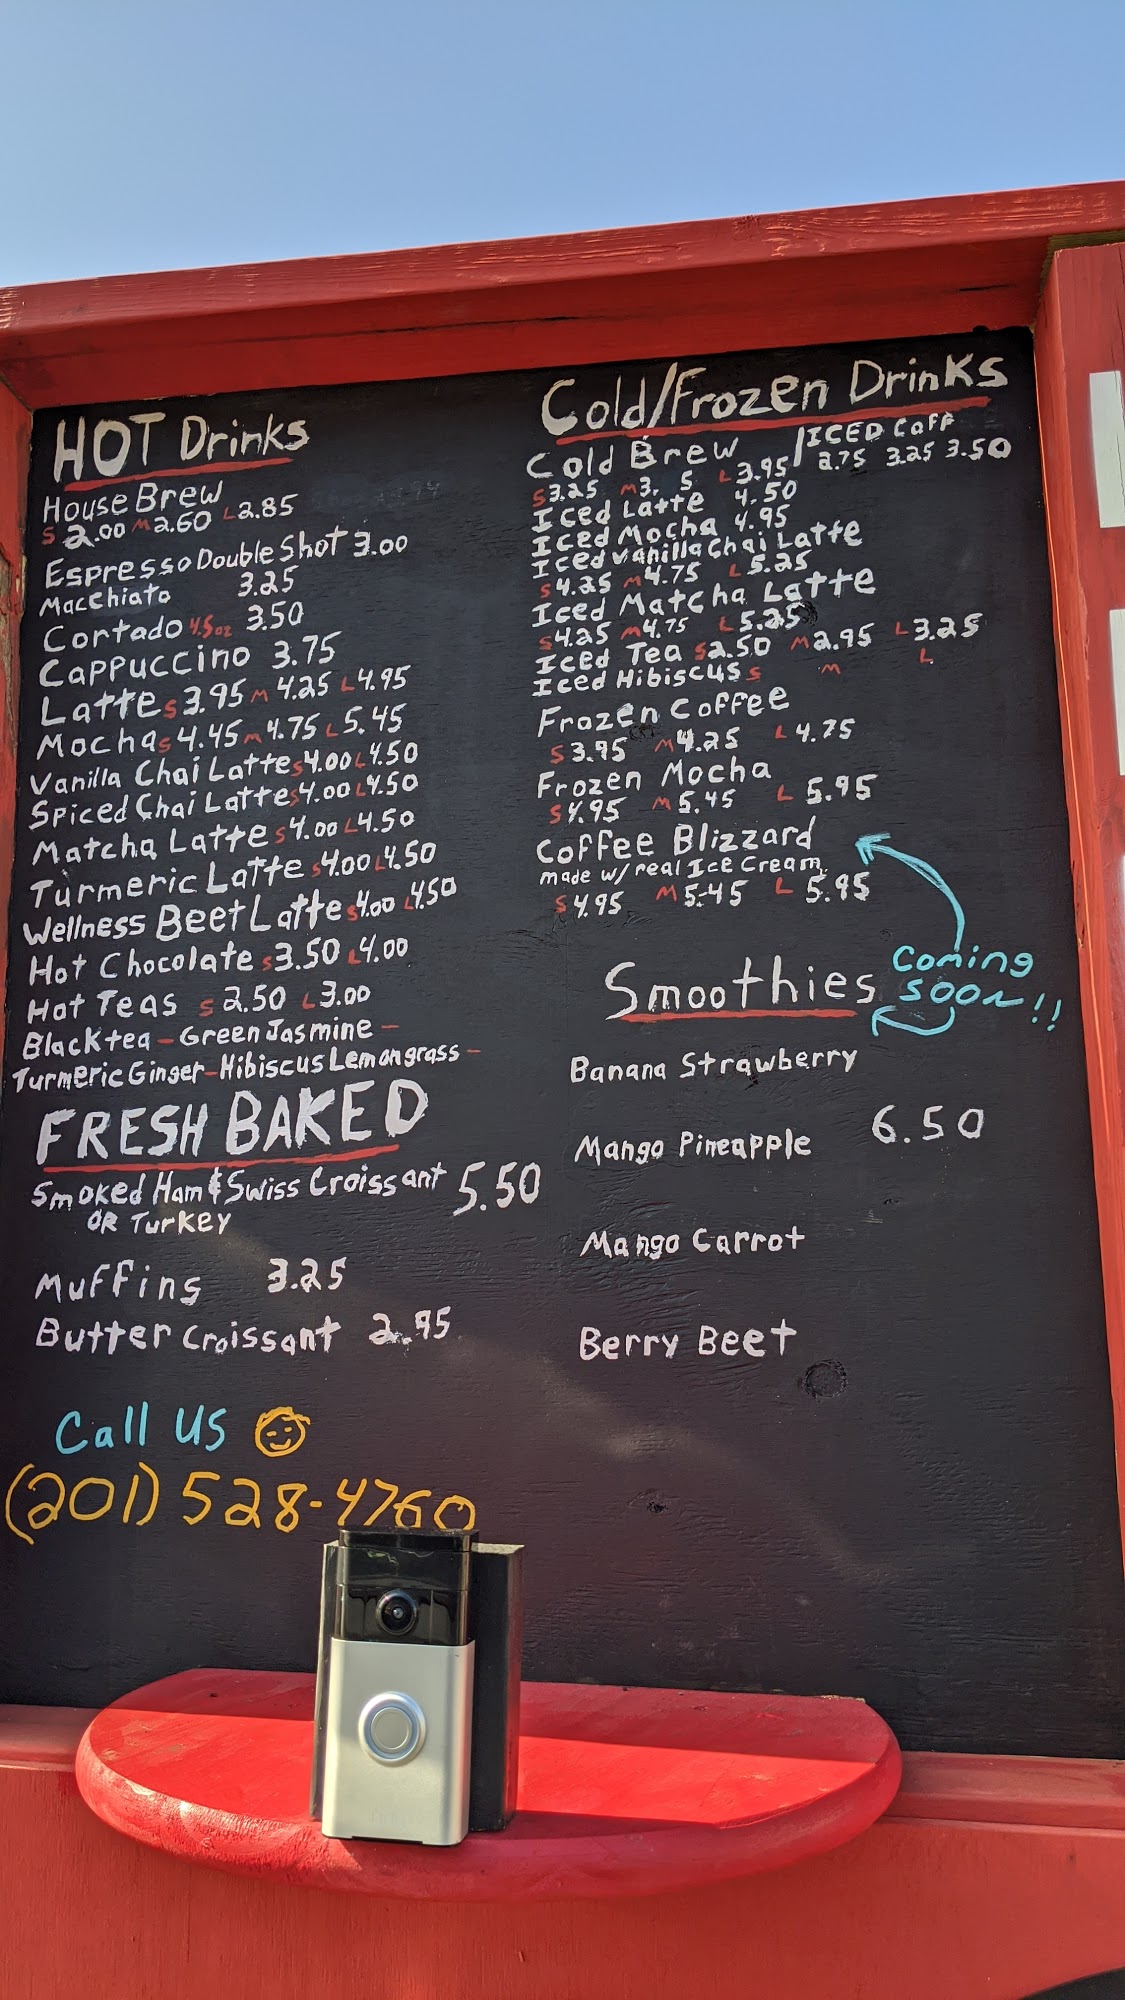 HOT Drinks
House Brew
S 2.00 M 2.60 L 2.85
Espresso Double Shot 3.00
Macchiato 3.25
Cortado 4.5oz 3.50
Cappuccino 3.75
Latte S 3.95 M 4.25 L 4.95
Mocha S 4.45 M 4.75 L 5.45
Vanilla Chai Latte S 4.00 L 4.50
Spiced Chai Latte S 4.00 L 4.50
Matcha Latte S 4.00 L 4.50
Turmeric Latte S 4.00 L 4.50
Wellness Beet Latte S 4.00 L 4.50
Hot Chocolate S 3.50 L 4.00
Hot Teas S 2.50 L 3.00
Black tea - Green Jasmine -
Turmeric Ginger - Hibiscus Lemongrass -
FRESH BAKED
Smoked Ham & Swiss Croissant 5.50
OR Turkey
Muffins 3.25
Butter Croissant 2.95
Call US
(201) 528-4760
Cold/Frozen Drinks
Cold Brew / ICED Coff
S 3.25 M 3. 5 L 3.95 2.75 3.25 3.50
Iced Latte 4.50
Iced Mocha 4.95
Iced Vanilla Chai Latte
S 4.25 M 4.75 L 5.25
Iced Matcha Latte
S 4.25 M 4.75 L 5.25
Iced Tea S 2.50 M 2.95 L 3.25
Iced Hibiscus S M L
Frozen Coffee
S 3.95 M 4.25 L 4.75
Frozen Mocha
S 4.95 M 5.45 L 5.95
Coffee Blizzard
made w/ real Ice Cream
S 4.95 M 5.45 L 5.95
Coming
Soon!!
Smoothies
Banana Strawberry
Mango Pineapple 6.50
Mango Carrot
Berry Beet